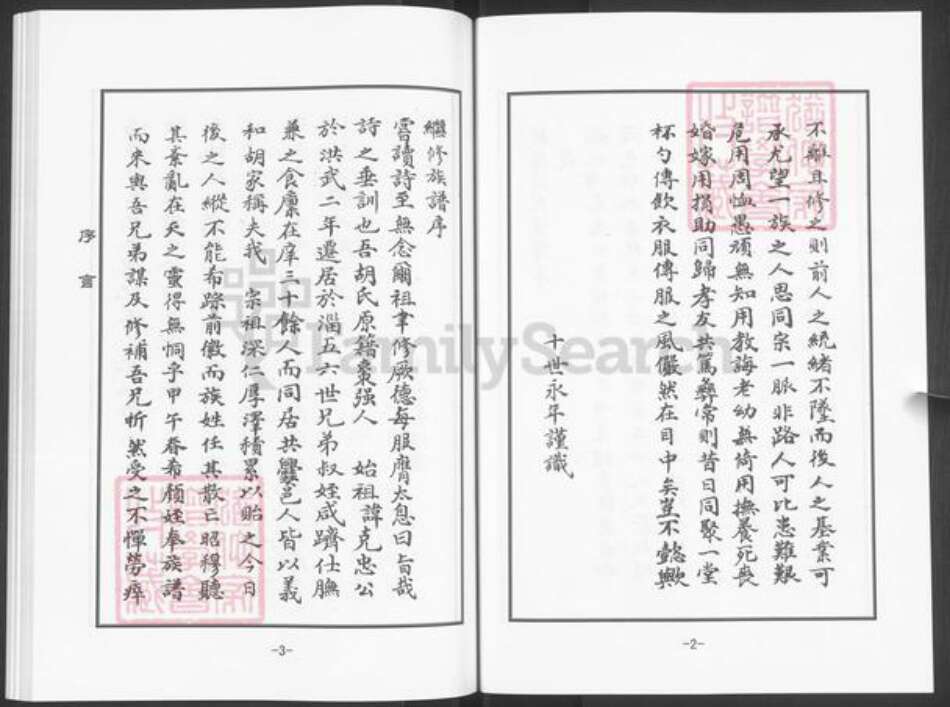 不輟且修之則前人之統緒不墜而後人之基業可
承尤望一族之人思同宗一脈非路人可比患難艱
危用周恤愚頑無知用教誨老幼無倚用撫養死喪
婚嫁用捐助同歸孝友共篤彝常則昔日同聚一堂
杯勺傳飲衣服傳服之風儼然在目中矣豈不懿歟
十世永年謹識
-2-
繼修族譜序
嘗讀詩至無念爾祖聿修厥德每服膺太息曰旨哉
詩之垂訓也吾胡氏原籍棗強人 始祖諱克忠公
於洪武二年遷居於淄五六世兄弟叔姪咸躋仕膴
兼之食廩在庠三十餘人而同居共爨邑人皆以義
和胡家稱夫我 宗祖深仁厚澤積累以貽之今日
後之人縱不能布踪前徽而族姓任其散亡昭穆聽
其紊亂在天之靈得無恫乎甲午春希顏姪奉族譜
而來與吾兄弟謀及修補吾兄忻然受之不憚勞瘁
序言
-3-
FamilySearch